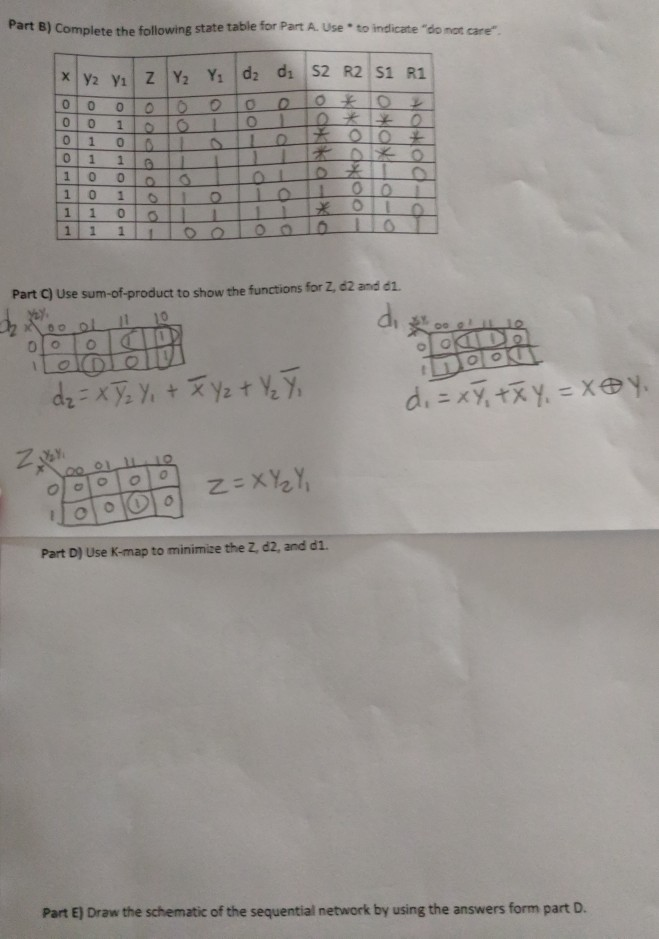 Part B) Complete the following state table for Part A. Use * to indicate "do not care".
x y2 y1 Z Y2 Y1 d2 d1 S2 R2 S1 R1
0 0 0 0 0 0 0 0 0 * 0 *
0 0 1 0 0 1 0 1 0 * * 0
0 1 0 0 1 0 1 0 * 0 0 *
0 1 1 0 1 1 1 1 * 0 * 0
1 0 0 0 0 1 0 1 0 * 1 0
1 0 1 0 1 0 1 0 1 0 0 1
1 1 0 0 1 1 1 1 * 0 1 0
1 1 1 1 0 0 0 0 0 1 0 1
Part C) Use sum-of-product to show the functions for Z, d2 and d1.
d2 x y2y1 00 01 11 10
0 0 0 1 1
1 0 1 0 1
d2 = xy̅2y1 + x̅y2 + y2y̅1
d1 00 01 11 10
0 0 1 1 0
1 1 0 0 1
d1 = xy̅1 + x̅y1 = x⊕y1
Z x y2y1 00 01 11 10
0 0 0 0 0
1 0 0 1 0
Z = xy2y1
Part D) Use K-map to minimize the Z, d2, and d1.
Part E) Draw the schematic of the sequential network by using the answers form part D.